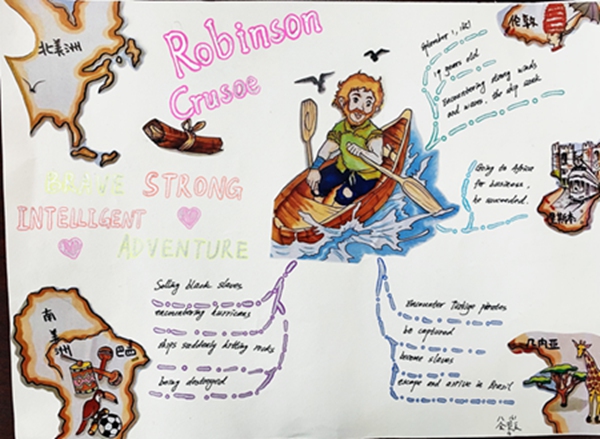 北美洲
Robinson
Crusoe
伦敦
September 1,
19 years old
Encountering strong winds
and waves, the ship sank
BRAVE STRONG
INTELLIGENT
ADVENTURE
Going to Africa
for business,
he succeeded.
南
美
洲 巴西
Selling black slaves
encountering hurricane
ships suddenly hitting rocks
being destroyed
Encounter pirates
be captured
become slaves
escape and arrive in Brazil
几内亚